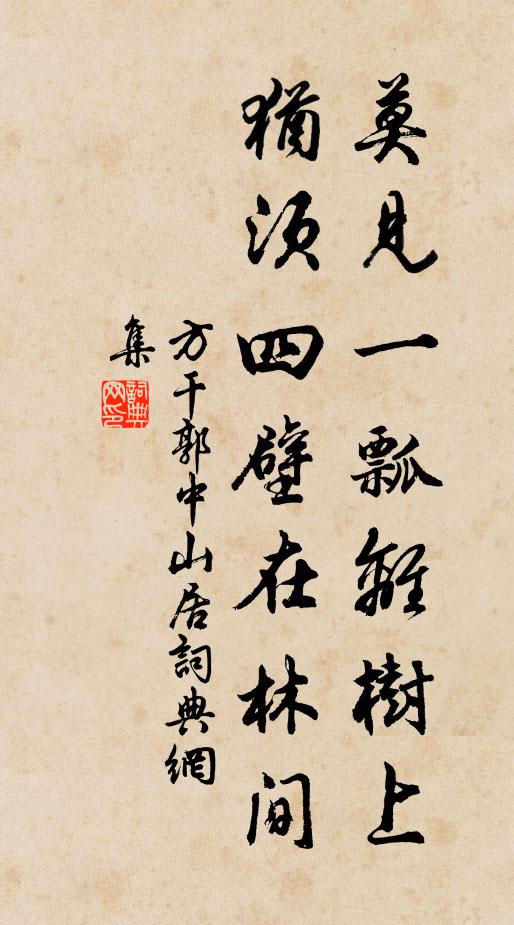 莫見一瓢離樹上
猶須四壁在林間
方干郭中山居詞典網
集
詞典
網印